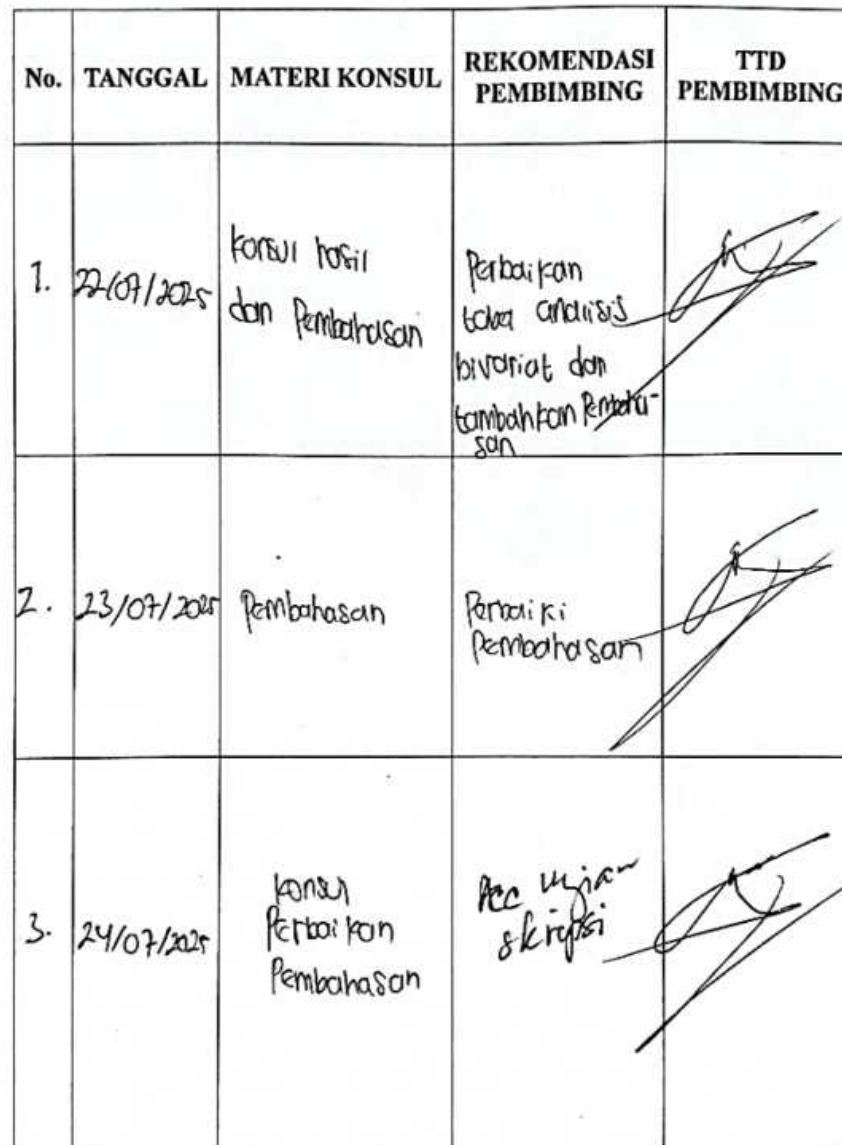 No. TANGGAL MATERI KONSUL REKOMENDASI PEMBIMBING TTD PEMBIMBING
1. 22/07/2025
konsul hasil
dan Pembahasan
Perbaikan
tabel analisis
bivariat dan
tambahkan Pembaha-
san
2. 23/07/2025 Pembahasan
Perbaiki
Pembahasan
3. 24/07/2025
konsul
Perbaikan
Pembahasan
Acc ujian
skripsi